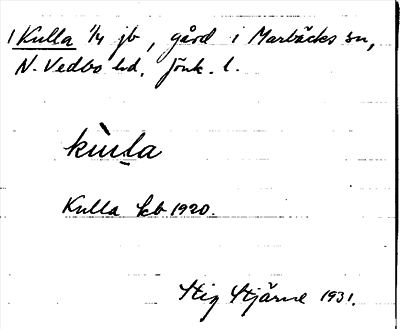 1 Kulla ¼ jb, gård i Marbäcks sn,
N. Vedbo hd. Jönk. l.
Kulla kb 1920.
Stig Stjärne 1931.